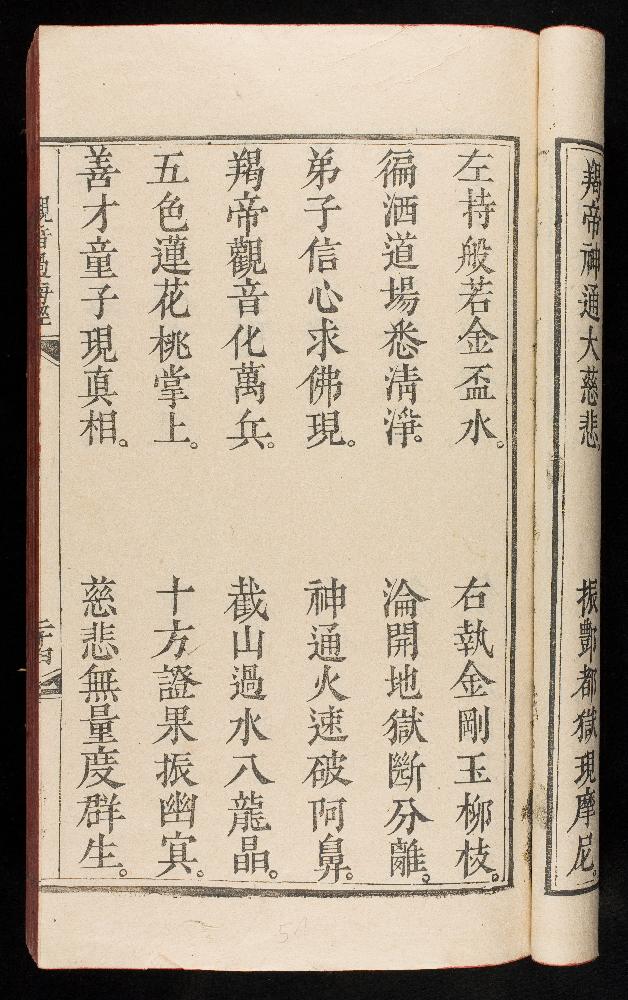 羯帝神通大慈悲。　振酆都獄現摩尼。
左持般若金盃水。　右執金剛玉柳枝。
徧洒道場悉清淨。　淪開地獄斷分離。
弟子信心求佛現。　神通火速破阿鼻。
羯帝觀音化萬兵。　截山過水八龍晶。
五色蓮花桃掌上。　十方證果振幽冥。
善才童子現真相。　慈悲無量度群生。
觀音過海經
二十四